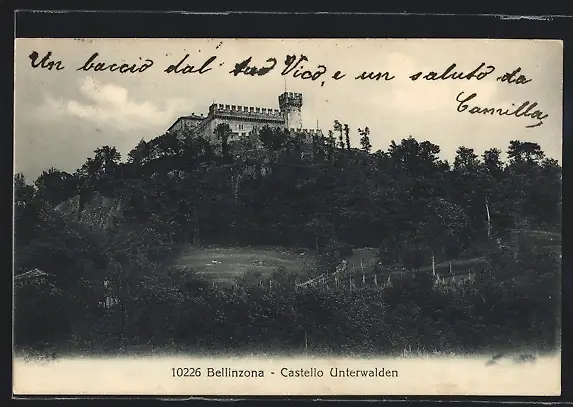 Un bacio dal tuo Vico, e un saluto da
Camilla
10226 Bellinzona - Castello Unterwalden